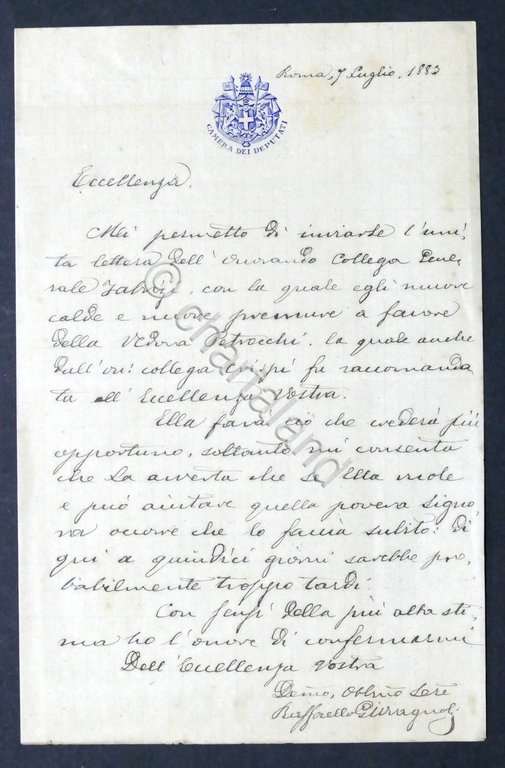 Roma, 7 Luglio, 1883
CAMERA DEI DEPUTATI
Eccellenza,
Mi permetto di inviarle l'uni,
ta lettera dell'onorando Collega Gene,
rale Fabrizi, con la quale egli muove
calde e nuove premure a favore
della Vedova Petrocchi, la quale anche
dall'on: collega Crispi fu raccomanda
ta all'Eccellenza Vostra.
Ella farà ciò che crederà più
opportuno, soltanto mi consenta
che La avverta che se Ella vuole
e può aiutare quella povera signo,
ra occorre che lo faccia subito: di
qui a quindici giorni sarebbe pro,
babilmente troppo tardi.
Con sensi della più alta sti,
ma ho l'onore di confermarmi
Dell'Eccellenza Vostra
Devmo, Obblmo
Raffaello Giovagnoli
© chartaland